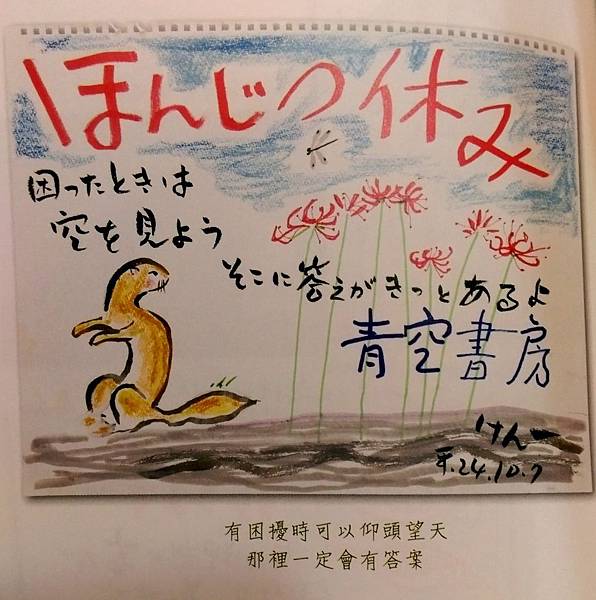 ほんじつ休み
困ったときは
空を見よう
そこに答えがきっとあるよ
青空書房
けん一
平.24.10.7
有困擾時可以仰頭望天
那裡一定會有答案